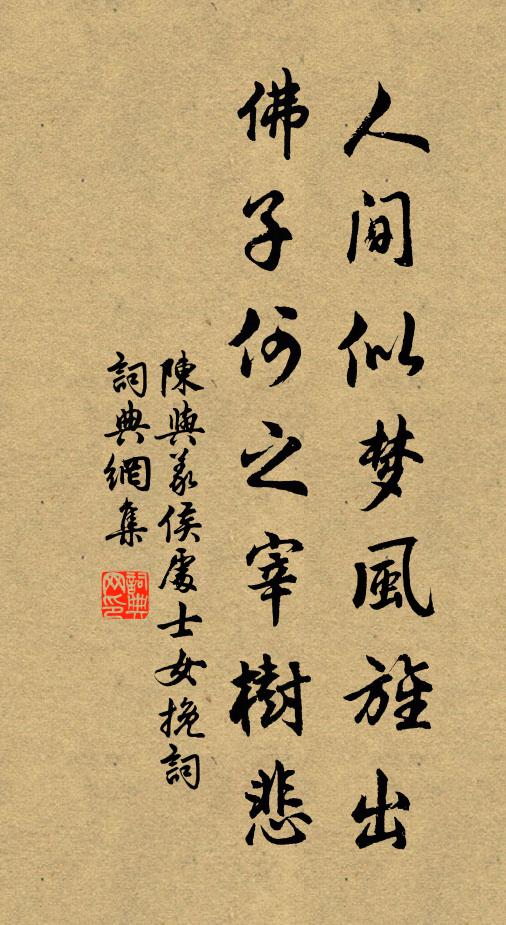 人间似梦風旌出
佛子何之宰樹悲
陳與義侯處士女挽詞
詞典網集
詞典网印